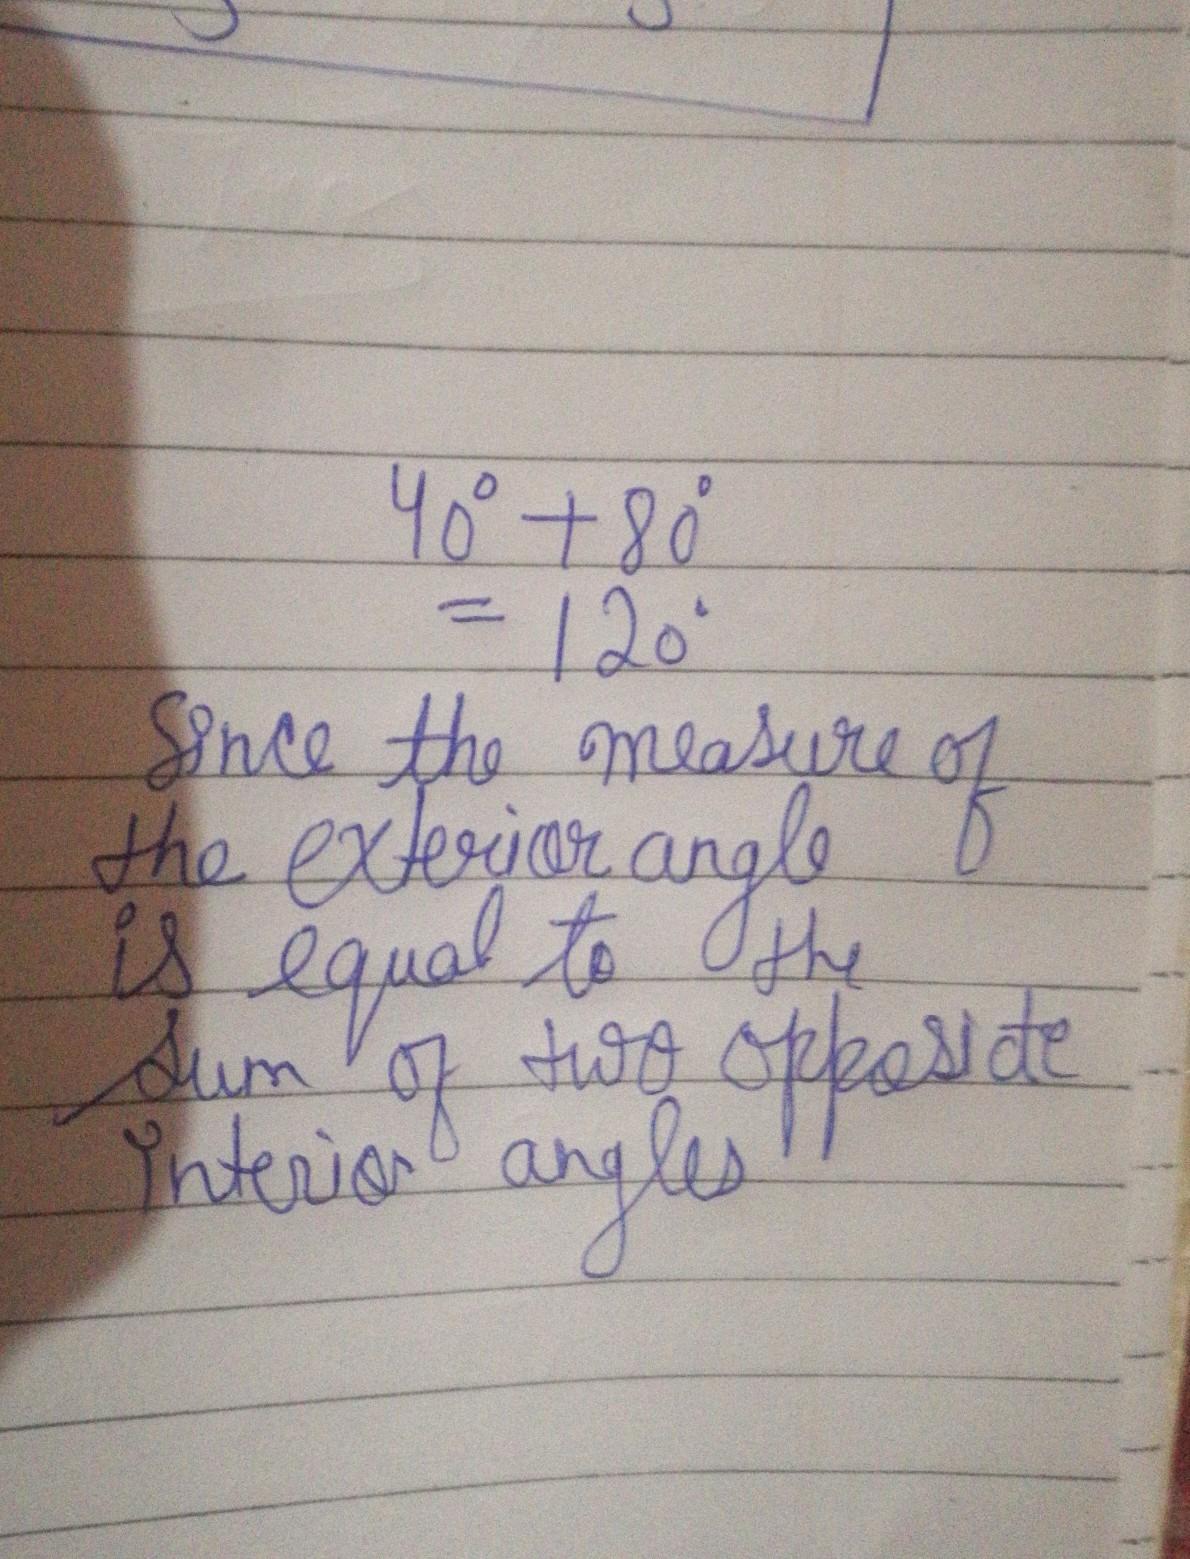 40° + 80°
= 120°
Since the measure of
the exterior angle
is equal to the
sum of two opposite
interior angles